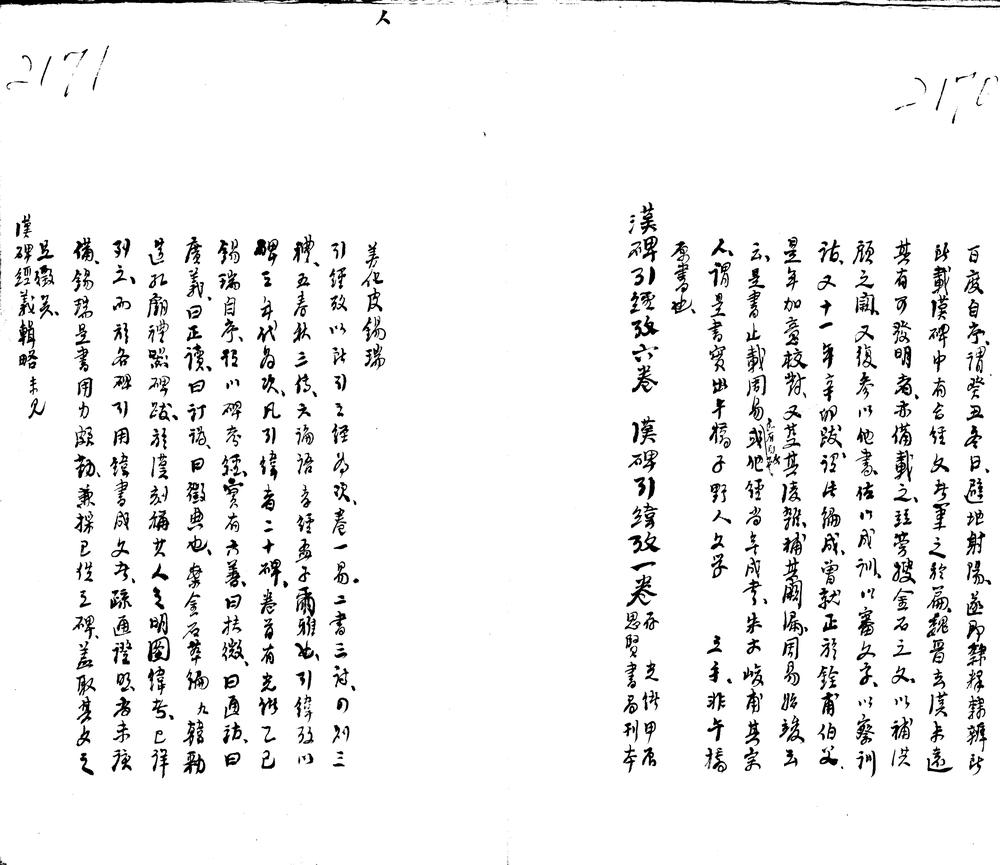 2170
百度自序謂癸丑冬日避地射陽遂即隸釋隸辨所
所載漢碑中有合經文者筆之於篇魏晉去漢未遠
其有可發明者亦備載之並旁搜金石之文以補洪
顧之闕又復參以他書佐以成訓以審文字以察訓
詁又十一年辛卯跋謂此編成曾就正於銓甫伯父
是年加意校對又芟其淩雜補其闕漏周易始竣云
云是書止載周易或他經尚未成書朱士峻甫其宗
人謂是書實出午橋子野人文學 之手非午橋
原書也
漢碑引經攷六卷 漢碑引緯攷一卷 存 光緒甲辰思賢書局刊本
2171
善化皮錫瑞
引經攷以所引之經為次卷一易二書三詩四則三
禮五春秋三傳六論語孝經孟子爾雅也引緯攷以
碑之年代為次凡引緯者二十碑卷首有光緒乙巳
錫瑞自序稱以碑攷經實有六善曰扶微曰通詁曰
廣義曰正讀曰訂誤曰徵典也案金石萃編九韓勅
造孔廟禮器碑跋於漢刻稱其人之明圖緯者已詳
引之而於各碑引用緯書成文者疏通證明者未廣
備錫瑞是書用力頗勤兼採已佚之碑蓋取其文之
足徵矣
漢碑經義輯略 未見
人